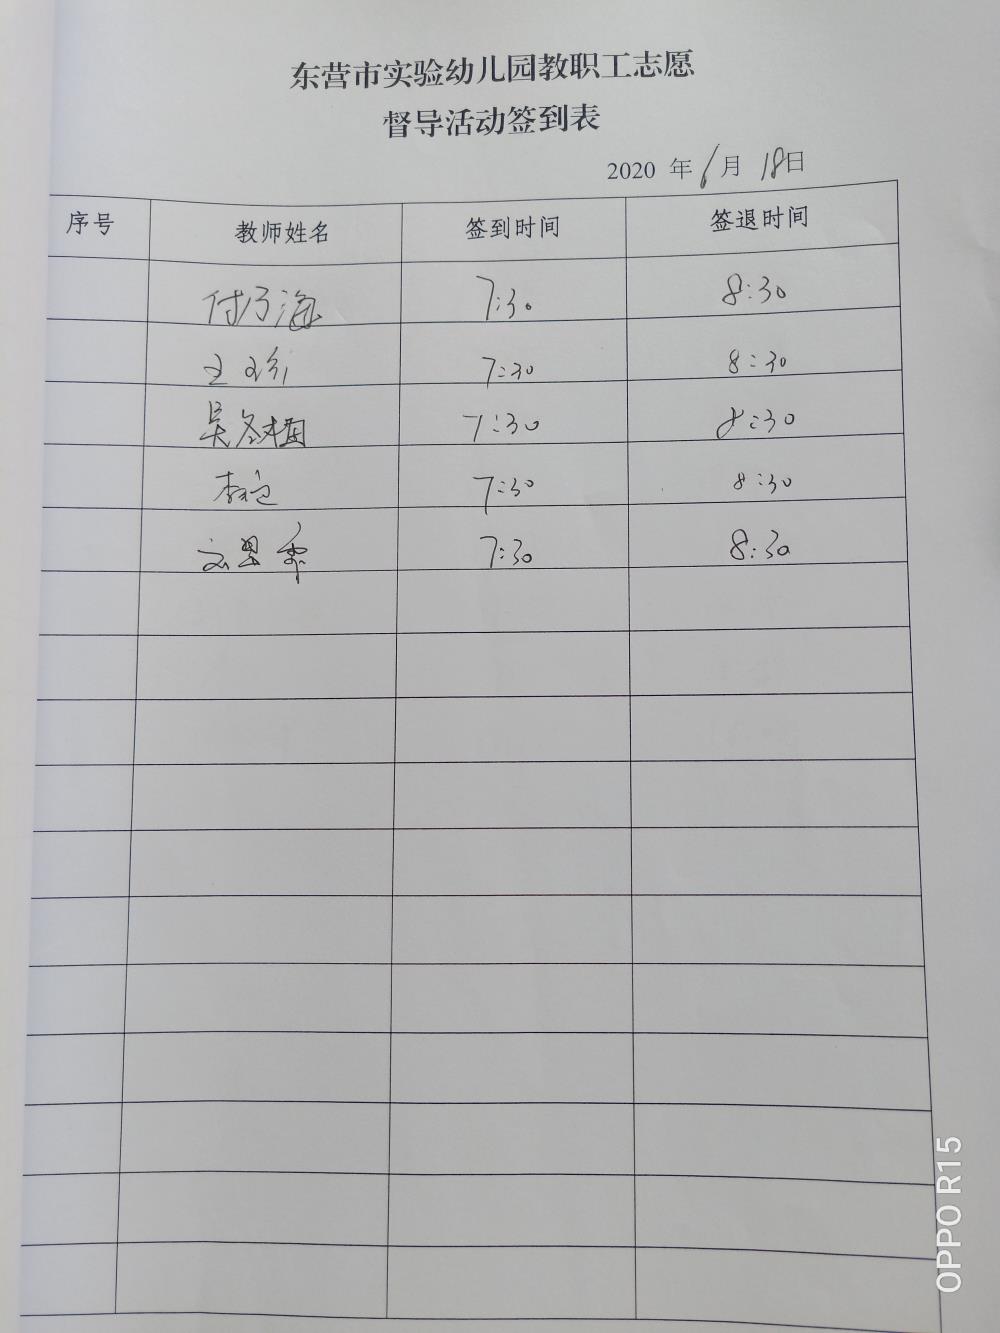 东营市实验幼儿园教职工志愿
督导活动签到表
2020 年 6月 18日
序号 教师姓名 签到时间 签退时间
付乃海 7:30 8:30
王 7:30 8:30
吴冬梅 7:30 8:30
李 7:30 8:30
7:30 8:30
OPPO R15